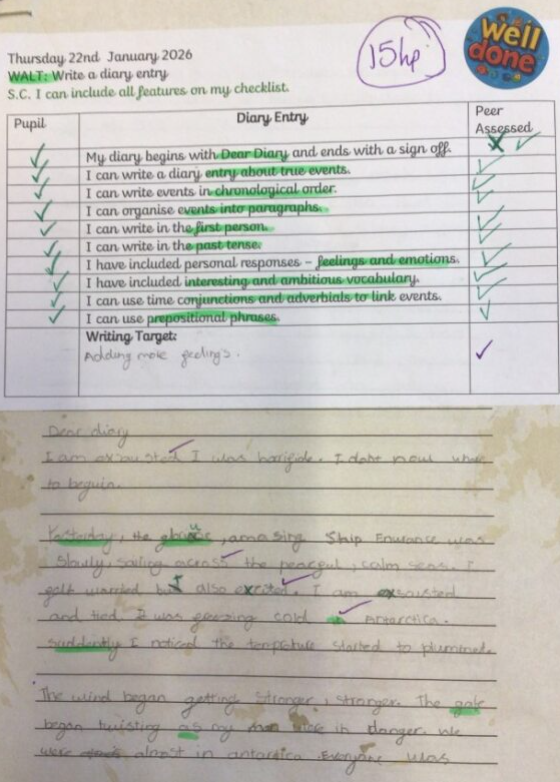 Thursday 22nd January 2026
WALT: Write a diary entry
S.C. I can include all features on my checklist.
15hp
Well done
Pupil
Diary Entry
Peer Assessed
My diary begins with Dear Diary and ends with a sign off.
I can write a diary entry about true events.
I can write events in chronological order.
I can organise events into paragraphs.
I can write in the first person.
I can write in the past tense.
I have included personal responses – feelings and emotions.
I have included interesting and ambitious vocabulary.
I can use time conjunctions and adverbials to link events.
I can use prepositional phrases.
Writing Target:
Adding more feelings.
Dear diary
I am exousted I was horrifide. I dont now where
to beguin.
Yesterday, the , amasing Ship Enurance was
slowly, sailing across the peacful, calm seas. I
felt worried but also excited. I am exsousted
and tied. It was freezing cold in Antarctica.
suddently I noticed the temprature started to plumined.
The wind began getting stronger, stronger. The gale
began twisting as my men were in danger. We
were almost in antartica. Everyone was